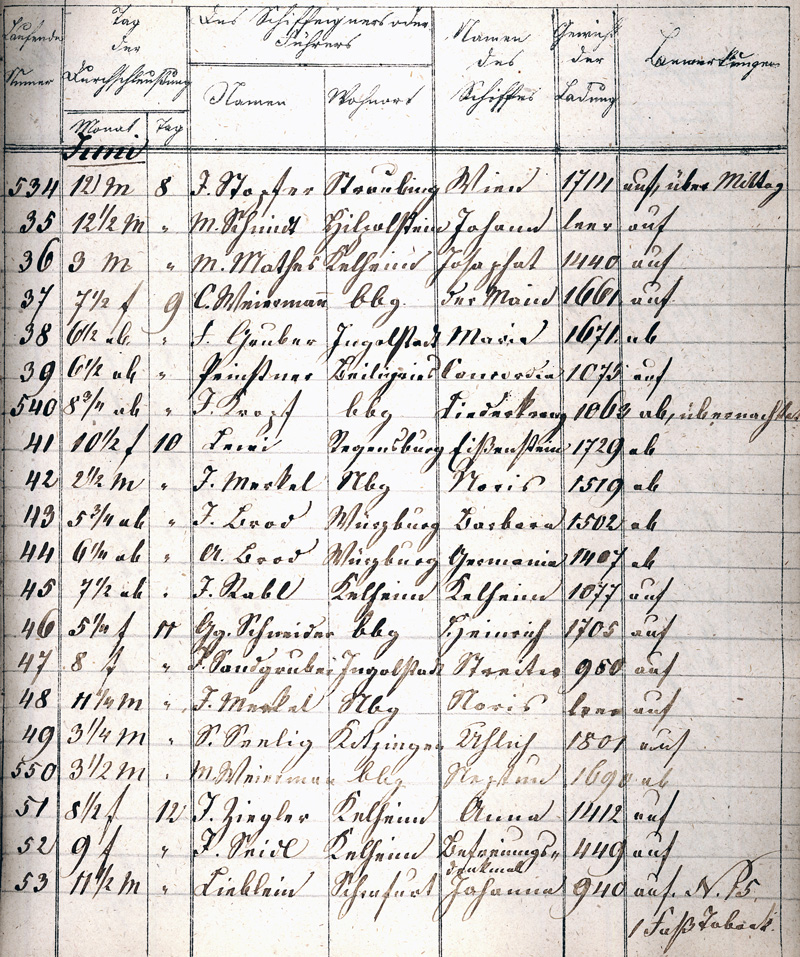 Laufende Numer | Tag der Durchschleußung | Des Schiffeigners oder Führers | Namen des Schiffes | Gewicht der Ladung | Bemerkungen
Monat | Tag | Namen | Wohnort
Juni
534 | 12 M | 8 | J. Stopfer | Straubing | Wien | 1711 | auf, über Mittag
35 | 12½ M | " | M. Schmidt | Hilpolstein | Johann | leer | auf
36 | 3 M | " | M. Mathes | Kelheim | Josaphat | 1440 | auf
37 | 7½ f | 9 | C. Weiermann | bbg | der Main | 1661 | auf
38 | 6½ ab | " | Gruber | Ingolstadt | Maria | 1671 | ab
39 | 6½ ab | " | Beilngries | Concordia | 1075 | auf
540 | 8¾ ab | " | J. Kropf | bbg | Liederkranz | 1063 | ab, übernachtet
41 | 10½ f | 10 | Regensburg | 1729 | ab
42 | 2½ M | " | J. Merkel | Nbg | Noris | 1519 | ab
43 | 5¾ ab | " | J. Brod | Würzburg | Barbara | 1502 | ab
44 | 6¼ ab | " | A. Brod | Würzburg | Germania | 1407 | ab
45 | 7½ ab | " | J. Rabl | Kelheim | Kelheim | 1077 | auf
46 | 5¼ f | 11 | Gg. Schneider | bbg | Heinrich | 1705 | auf
47 | 8 f | " | Sandgruber | Ingolstadt | Streiter | 950 | auf
48 | 11¼ M | " | J. Merkel | Nbg | Noris | leer | auf
49 | 3¼ M | " | S. Seelig | Kitzingen | Uhlich | 1801 | auf
550 | 3½ M | " | M. Weierman | bbg | Neptun | 1690 | ab
51 | 8½ f | 12 | J. Ziegler | Kelheim | Anna | 1412 | auf
52 | 9 f | " | J. Seidl | Kelheim | Befreiungs- | 449 | auf
denkmal
53 | 11½ M | " | Lieblein | Johanna | 940 | auf. N. 
1 Faß Taback.